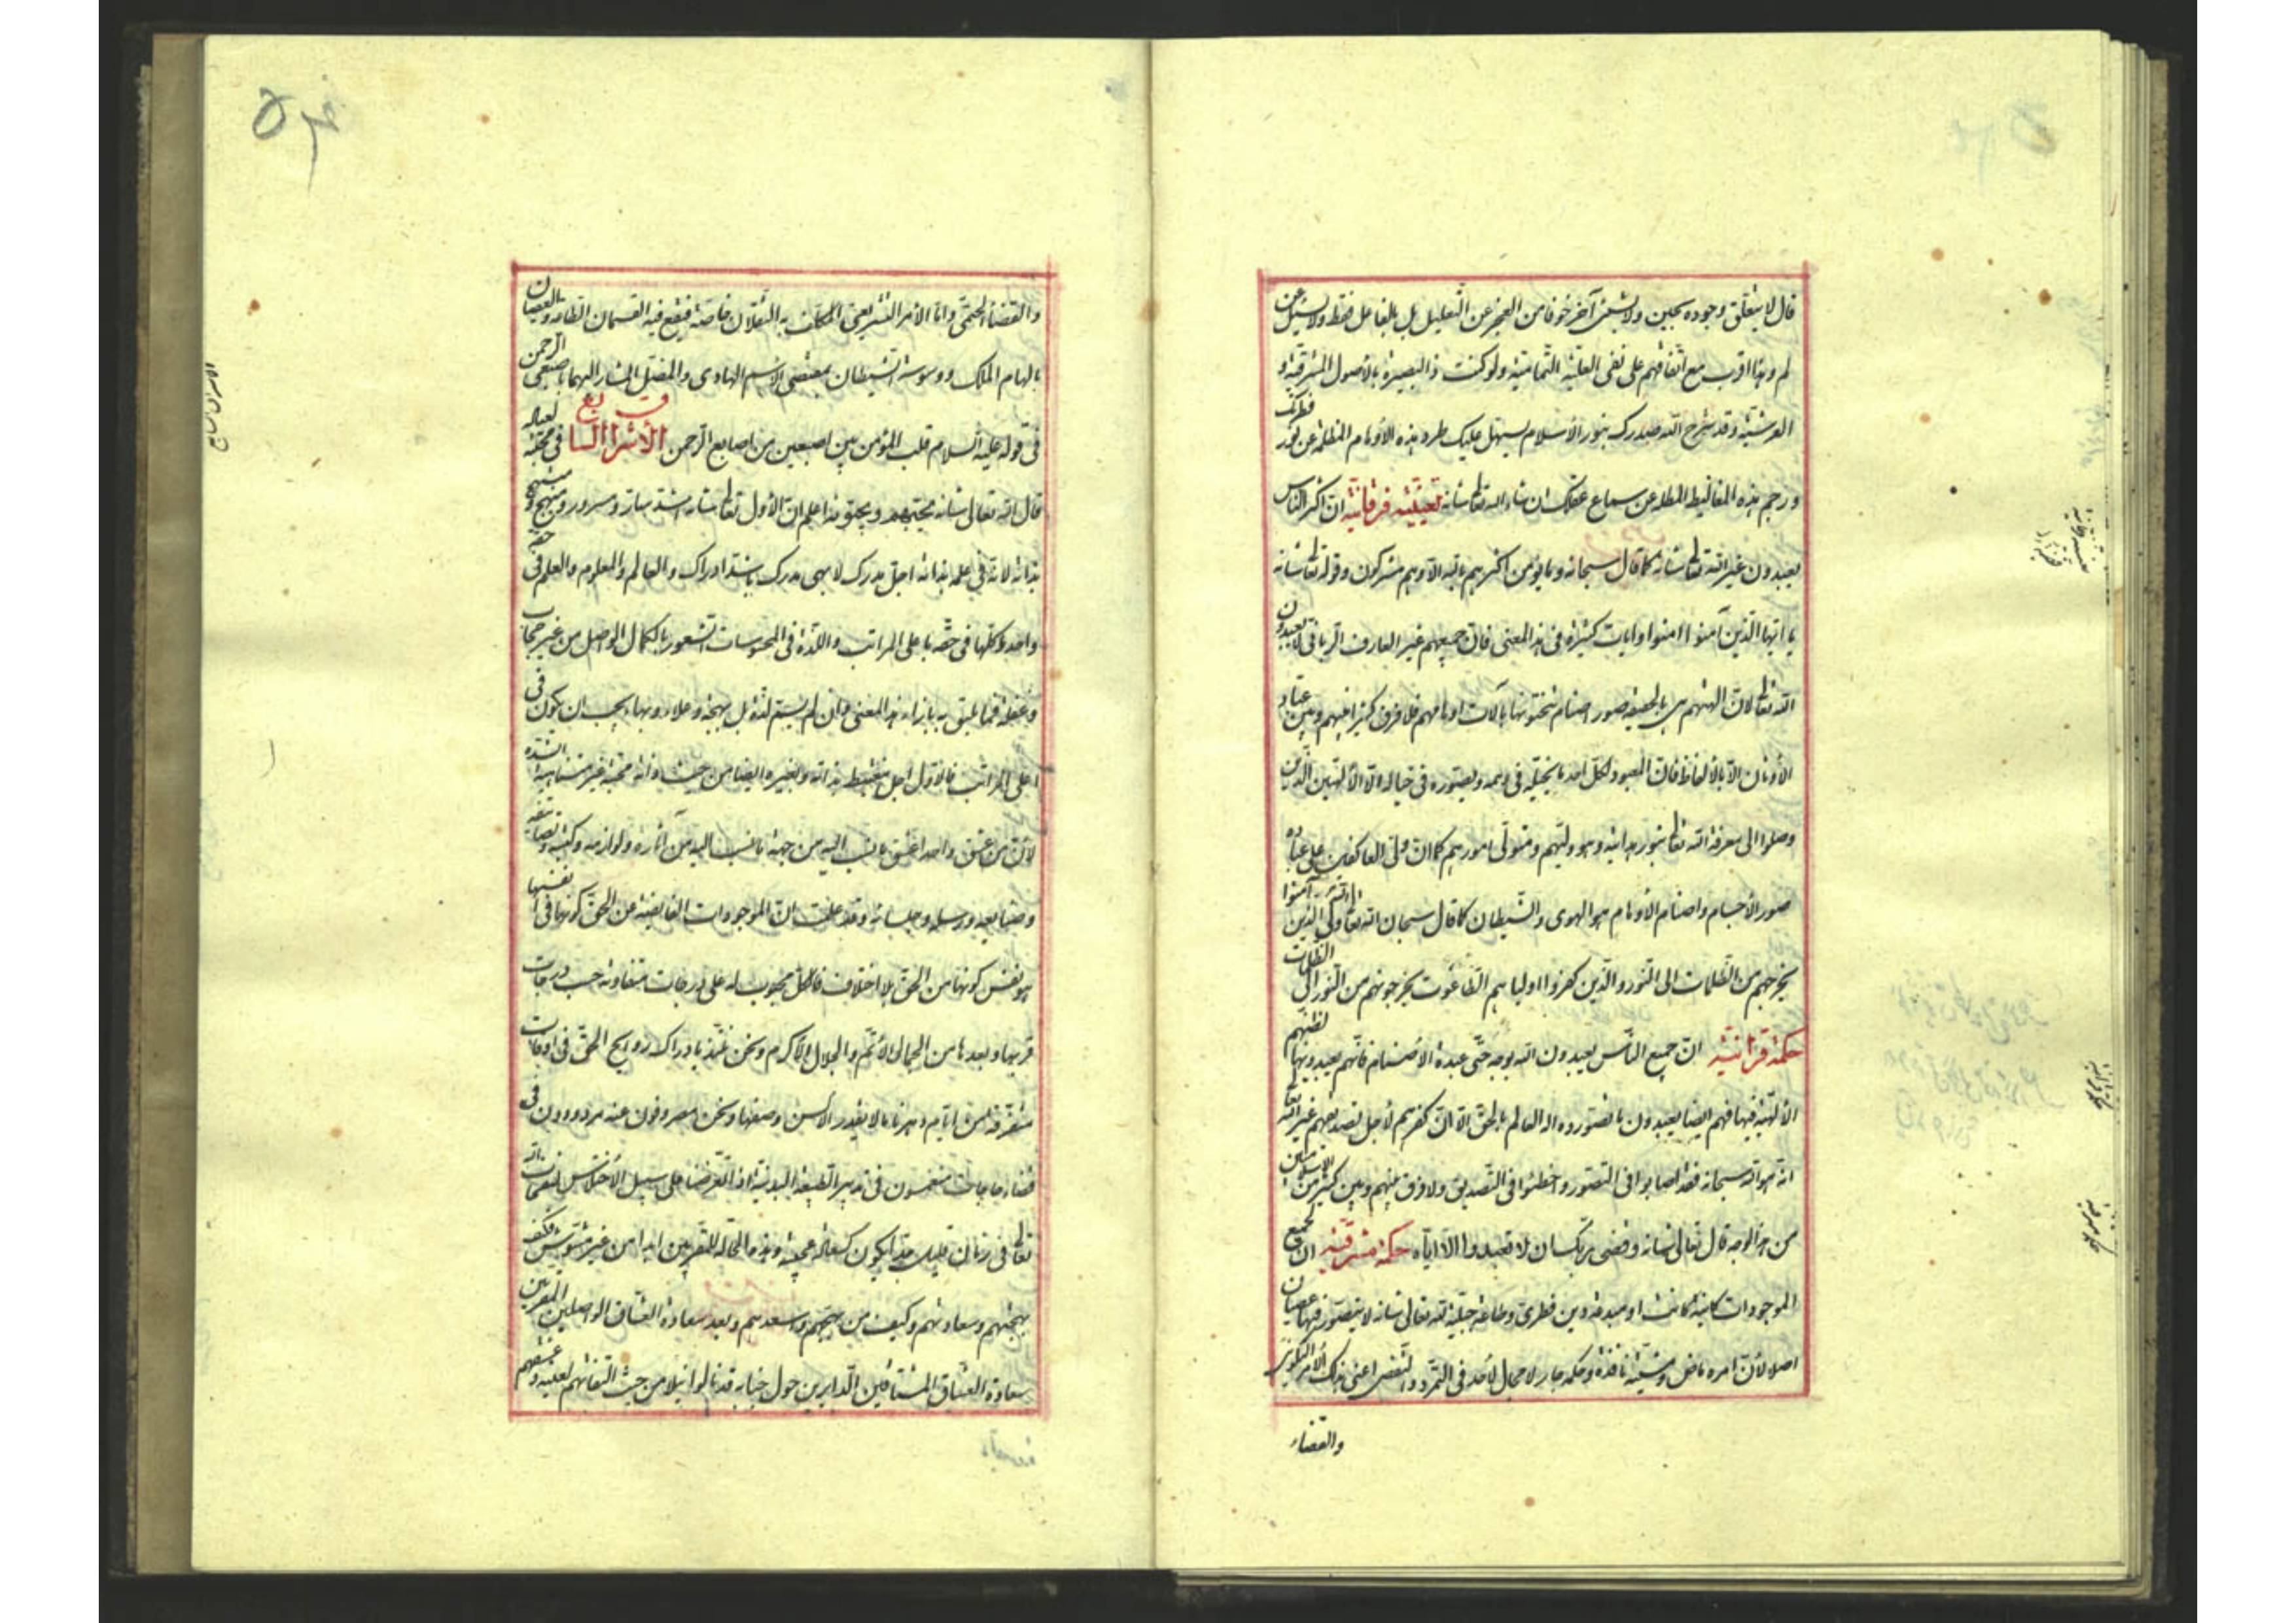 قال لا يتعلق وجوده بحين ولا بشيئ آخر خوفا من العجز عن التعليل بل بالفاعل فقط ولا يسئل عن
لم وهذا اقرب مع اتفاقهم على نفى العلية ولو كنت ذا بصيرة بالأصول المشرقية و
العرشية وقد شرح الله صدرك بنور الأسلام يسهل عليك طرد هذه الأوهام المظلمة عن نور فطرتك
ورجم هذه المغاليط عن سماع عقلك ان شاء الله تعالى شانه فرقانية ان اكثر الناس
يعبدون غير الله تعالى شانه كما قال سبحانه وما يؤمن اكثرهم بالله الا وهم مشركون وقوله تعالى شانه
يا ايها الذين آمنوا امنوا وآيات كثيرة فى هذا المعنى فان جميعهم غير العارف الربانى لا يعبدون
الله تعالى لان الههم هى بالحقيقة صور اصنام ينحتونها بآلات اوهامهم فلا فرق كثيرا بينهم وبين عباد
الأوثان الا بالألفاظ فان المعبود لكل احد ما يتخيله فى وهمه ويتصوره فى خياله الا الألهيين الذين
وصلوا الى معرفة الله تعالى بنور هدايته وهو وليهم ومتولى امورهم كما ان ولى العاكفين على عبادة
صور الأجسام واصنام الأوهام هو الهوى والشيطان كما قال سبحان الله تعالى الله ولى الذين آمنوا
يخرجهم من الظلمات الى النور والذين كفروا اولياهم الطاغوت يخرجونهم من النور الى الظلمات
حكمة قرانية ان جميع الناس يعبدون الله بوجه حتى عبدة الأصنام فانهم يعبدونها لظنهم
الألهية فيها فهم ايضا يعبدون ما تصوروه اله العالم بالحق الا ان كفرهم لأجل تصديقهم غير الله تعالى
انه هو الله سبحانه فقد اصابوا فى التصور واخطئوا فى التصديق ولا فرق بينهم وبين كثير من الأسلاميين
من هذا الوجه قال تعالى شانه وقضى ربك ان لا تعبدوا الا اياه حكمة مشرقية ان لجميع
الموجودات كاينة كانت او مبدعة دين فطرى وطاعة جبلية لله تعالى شانه لا يتصور فيها عصيان
اصلا لأن امره ماض ومشيته نافذة وحكمه جار لا مجال لأحد فى التمرد والتعصى اعنى بذلك الأمر التكوينى
والقضاء
والقضاء الحتمى واما الأمر التشريعى المكلف به الثقلان خاصة فيقع فيه القسمان الطاعة والعصيان
بالهام الملك ووسوسة الشيطان بمقتضى الاسم الهادى والمضل المشار اليهما باصبعى الرحمن
فى قوله عليه السلام قلب المؤمن بين اصبعين من اصابع الرحمن الأشراق السابع فى محبته لعباده
قال الله تعالى شانه يحبهم ويحبونه اعلم ان الأول تعالى شانه اشد سار ومسرور ومبتهج و
بذاته لانه فى علمه بذاته اجل مدرك لأبهى مدرك باشد ادراك والعالم والمعلوم والعلم فى
واحد وكلها فى حقه باعلى المراتب واللذة فى المحسوسات الشعور بالكمال الواصل من غير حجاب
وغفلة فما يليق به بازاء هذا المعنى وان لم يسم لذة بل بهجة وعلاء وبهاء يجب ان يكون فى
اعلى المراتب فالأول اجل مغتبط بذاته وبغيره ايضا من حيث ذاته محبة غير متناهية الشدة
لأن من عشق واحدا عشق ما ينسب اليه من جهة ما ينسب اليه من آثاره ولوازمه وكتبه وتصانيفه
وصنايعه ورسله وجلسائه وقد علمت ان الموجودات الفايضة عن الحق كونها فى انفسها
هو نفس كونها من الحق بلا اختلاف فالكل محبوب له على درجات متفاوتة حسب درجات
قربها وبعدها من الجمال الأتم والجلال الأكرم ونحن نلتذ بادراك روايح الحق فى اوقات
متفرقة من ايام دهرنا ما لا يقدر الألسن وصفها ونحن مصروفون عنه مردودون فى
قضاء حاجات منغمسون فى تدبير الطبيعة البدنية اذا تعرضنا على سبيل الأختلاس لنفحات الله
تعالى فى زمان قليل جدا يكون كسعادة عجيبة وهذه الحالة للمقربين ابدا من غير مشوش فكيف
بهجتهم وسعادتهم وكيف من يبهجهم ويسعدهم وبعد سعادة العشاق الواصلين المقربين
سعادة العشاق المشتاقين الدايرين حول جنابه قد نالوا نيلا من حيث التفاتهم لعليه وعشقهم
الاشراق السابع